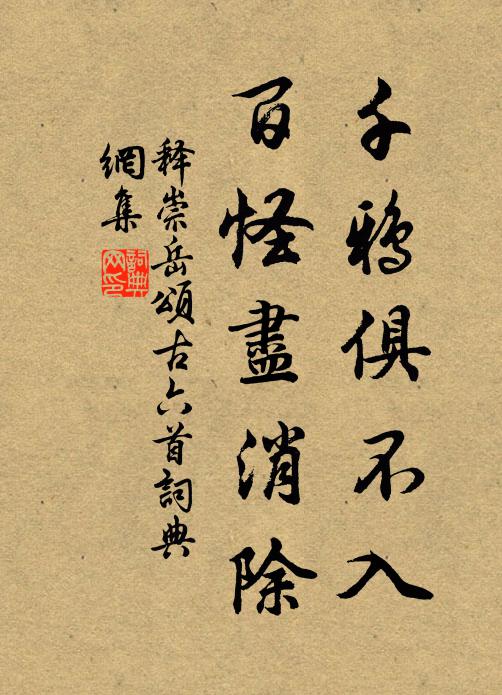 千鴉俱不入
百怪盡消除
释崇岳頌古六首詞典
網集
詞典
网印